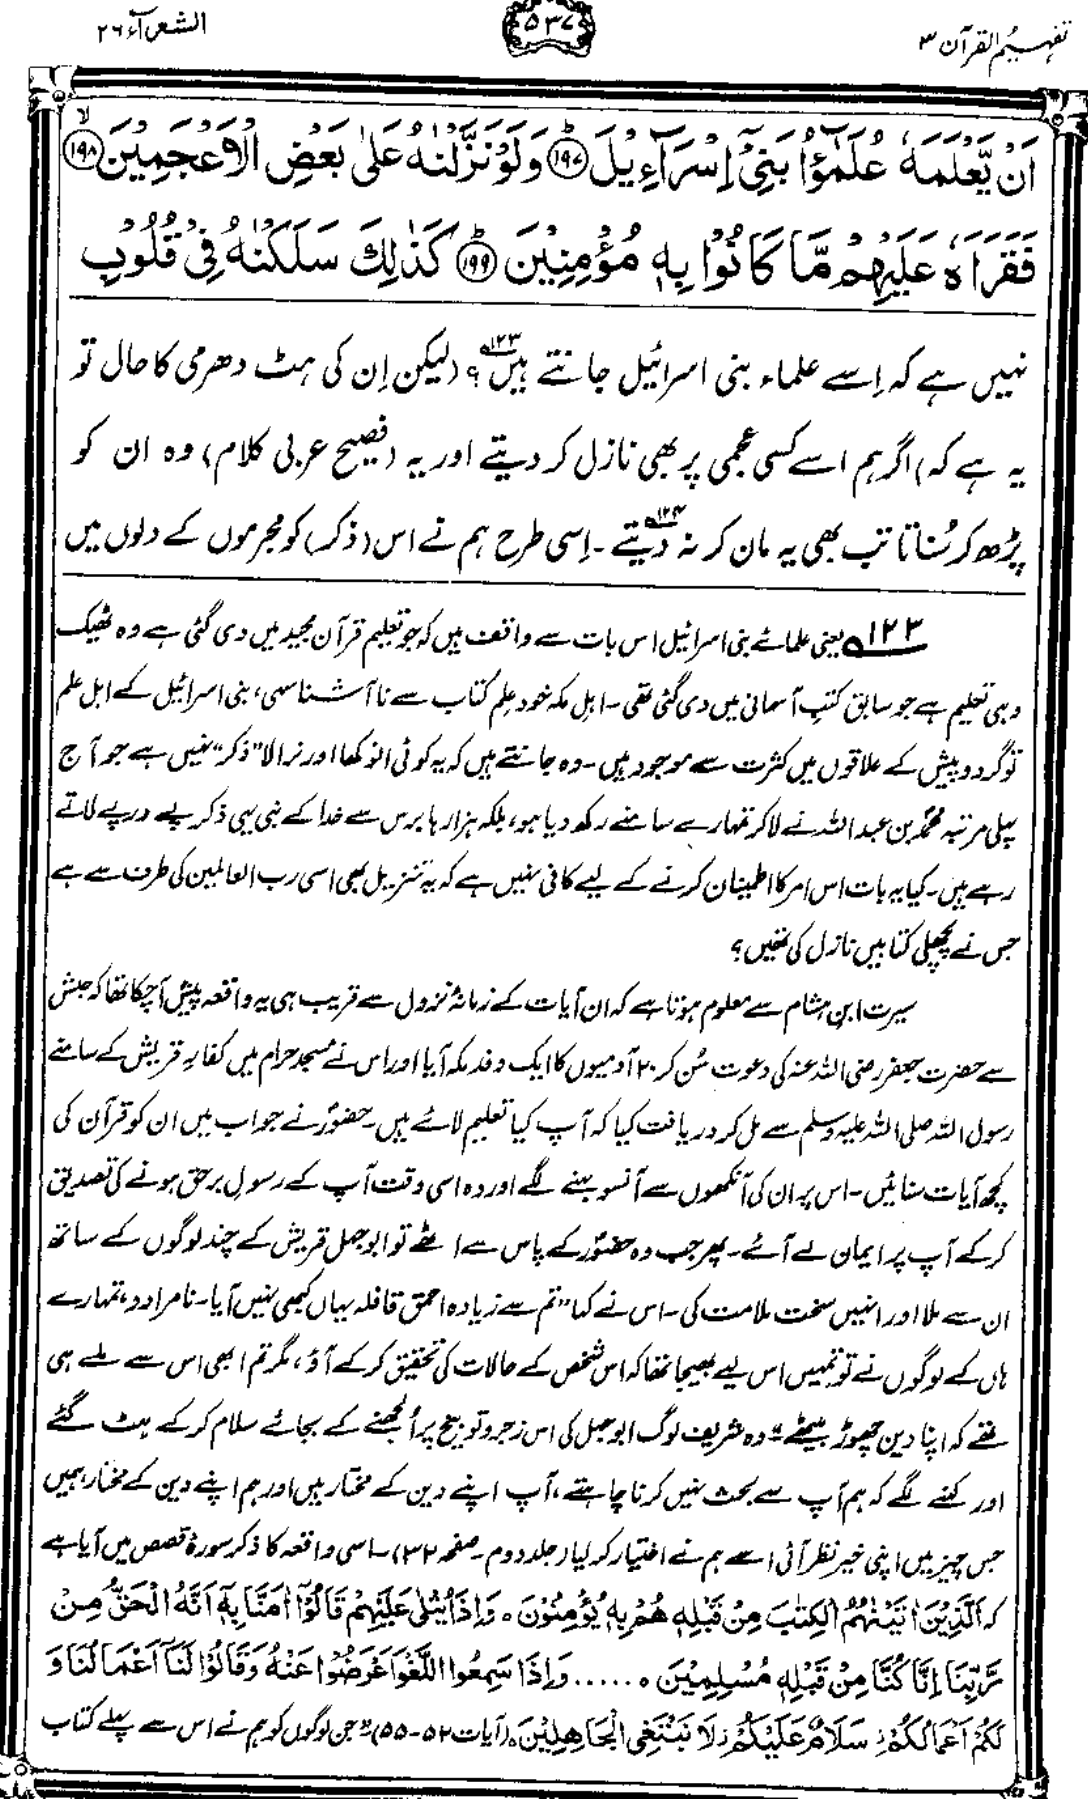 تفہیم القرآن ۳
۵۳۷
الشعرآء ۲۶
اَنْ يَّعْلَمَهٗ عُلَمٰٓؤُا بَنِيْٓ اِسْرَآءِيْلَ ﴿۱۹۷﴾ وَلَوْ نَزَّلْنٰهُ عَلٰى بَعْضِ الْاَعْجَمِيْنَ ﴿۱۹۸﴾
فَقَرَاَهٗ عَلَيْهِمْ مَّا كَانُوْا بِهٖ مُؤْمِنِيْنَ ﴿۱۹۹﴾ كَذٰلِكَ سَلَكْنٰهُ فِيْ قُلُوْبِ
نہیں ہے کہ اِسے علماء بنی اسرائیل جانتے ہیں۱۲۳؟ (لیکن اِن کی ہٹ دھرمی کا حال تو
یہ ہے کہ) اگر ہم اسے کسی عجمی پر بھی نازل کر دیتے اور یہ (فصیح عربی کلام) وہ ان کو
پڑھ کر سُناتا تب بھی یہ مان کر نہ دیتے۱۲۴۔ اِسی طرح ہم نے اس (ذکر) کو مجرموں کے دلوں میں
۱۲۳ یعنی علمائے بنی اسرائیل اس بات سے واقف ہیں کہ جو تعلیم قرآن مجید میں دی گئی ہے وہ ٹھیک
وہی تعلیم ہے جو سابق کتبِ آسمانی میں دی گئی تھی۔ اہل مکہ خود علم کتاب سے ناآشنا سہی، بنی اسرائیل کے اہل علم
تو گرد و پیش کے علاقوں میں کثرت سے موجود ہیں۔ وہ جانتے ہیں کہ یہ کوئی انوکھا اور نرالا "ذکر" نہیں ہے جو آج
پہلی مرتبہ محمدؐ بن عبداللہ نے لا کر تمہارے سامنے رکھ دیا ہو، بلکہ ہزارہا برس سے خدا کے نبی یہی ذکر پے در پے لاتے
رہے ہیں۔ کیا یہ بات اس امر کا اطمینان کرنے کے لیے کافی نہیں ہے کہ یہ تنزیل بھی اسی رب العالمین کی طرف سے ہے
جس نے پچھلی کتابیں نازل کی تھیں؟
سیرت ابن ہشام سے معلوم ہوتا ہے کہ ان آیات کے زمانۂ نزول سے قریب ہی یہ واقعہ پیش آچکا تھا کہ حبش
سے حضرت جعفر رضی اللہ عنہ کی دعوت سُن کر ۲۰ آدمیوں کا ایک وفد مکہ آیا اور اس نے مسجد حرام میں کفارِ قریش کے سامنے
رسول اللہ صلی اللہ علیہ وسلم سے مل کر دریافت کیا کہ آپ کیا تعلیم لائے ہیں۔ حضورؐ نے جواب میں ان کو قرآن کی
کچھ آیات سنائیں۔ اس پر ان کی آنکھوں سے آنسو بہنے لگے اور وہ اسی وقت آپ کے رسول برحق ہونے کی تصدیق
کر کے آپ پر ایمان لے آئے۔ پھر جب وہ حضورؐ کے پاس سے اٹھے تو ابوجہل قریش کے چند لوگوں کے ساتھ
ان سے ملا اور انہیں سخت ملامت کی۔ اس نے کہا "تم سے زیادہ احمق قافلہ یہاں کبھی نہیں آیا۔ نامرادو، تمہارے
ہاں کے لوگوں نے تو تمہیں اس لیے بھیجا تھا کہ اس شخص کے حالات کی تحقیق کر کے آؤ، مگر تم ابھی اس سے ملے ہی
تھے کہ اپنا دین چھوڑ بیٹھے" وہ شریف لوگ ابوجہل کی اس زجر و توبیخ پر اُلجھنے کے بجائے سلام کر کے ہٹ گئے
اور کہنے لگے کہ ہم آپ سے بحث نہیں کرنا چاہتے، آپ اپنے دین کے مختار ہیں اور ہم اپنے دین کے مختار، ہمیں
جس چیز میں اپنی خیر نظر آئی اسے ہم نے اختیار کر لیا (جلد دوم۔ صفحہ ۳۲)۔ اسی واقعہ کا ذکر سورۂ قصص میں آیا ہے
کہ اَلَّذِيْنَ اٰتَيْنٰهُمُ الْكِتٰبَ مِنْ قَبْلِهٖ هُمْ بِهٖ يُؤْمِنُوْنَ ۝ وَاِذَا يُتْلٰى عَلَيْهِمْ قَالُوْٓا اٰمَنَّا بِهٖٓ اَنَّهُ الْحَقُّ مِنْ
رَّبِّنَا اِنَّا كُنَّا مِنْ قَبْلِهٖ مُسْلِمِيْنَ ۝ ..... وَاِذَا سَمِعُوا اللَّغْوَ اَعْرَضُوْا عَنْهُ وَقَالُوْا لَنَآ اَعْمَالُنَا وَ
لَكُمْ اَعْمَالُكُمْ ز سَلَامٌ عَلَيْكُمْ ز لَا نَبْتَغِي الْجَاهِلِيْنَ ۝ (آیات ۵۲-۵۵) "جن لوگوں کو ہم نے اس سے پہلے کتاب